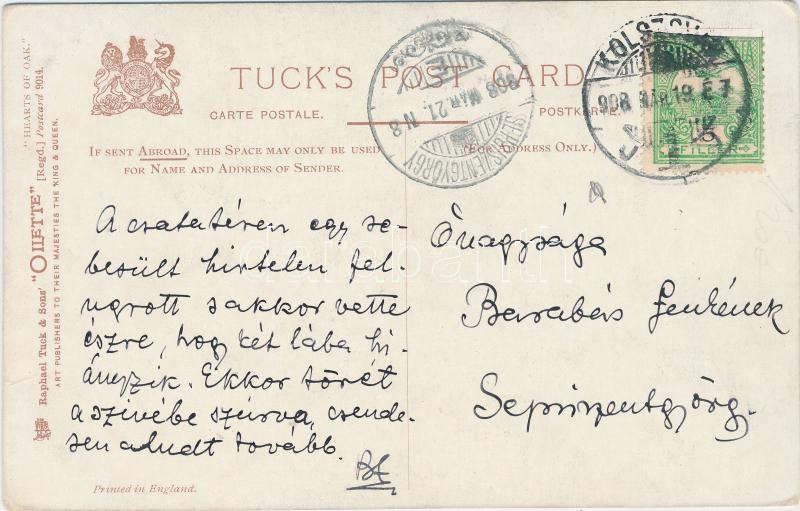 TUCK'S POST CARD
CARTE POSTALE. POSTKARTE.
IF SENT ABROAD, THIS SPACE MAY ONLY BE USED (FOR ADDRESS ONLY.)
FOR NAME AND ADDRESS OF SENDER.
"HEARTS OF OAK."
Raphael Tuck & Sons' "OILETTE" [Regd.] Postcard 9014.
ART PUBLISHERS TO THEIR MAJESTIES THE KING & QUEEN.
KOLOZSVÁR
908 MAR 19
908 MAR 21. N 8
SEPSISZENTGYÖRGY
5
FILLÉR
A csatatéren egy se-
besült hirtelen fel-
ugrott s akkor vette
észre, hogy két lába hi-
ányzik. Ekkor tőrét
a szivébe szúrva, csende-
sen aludt tovább.
Őnagysága
Barabás Lenkének
Sepsiszentgyörg.
Printed in England.